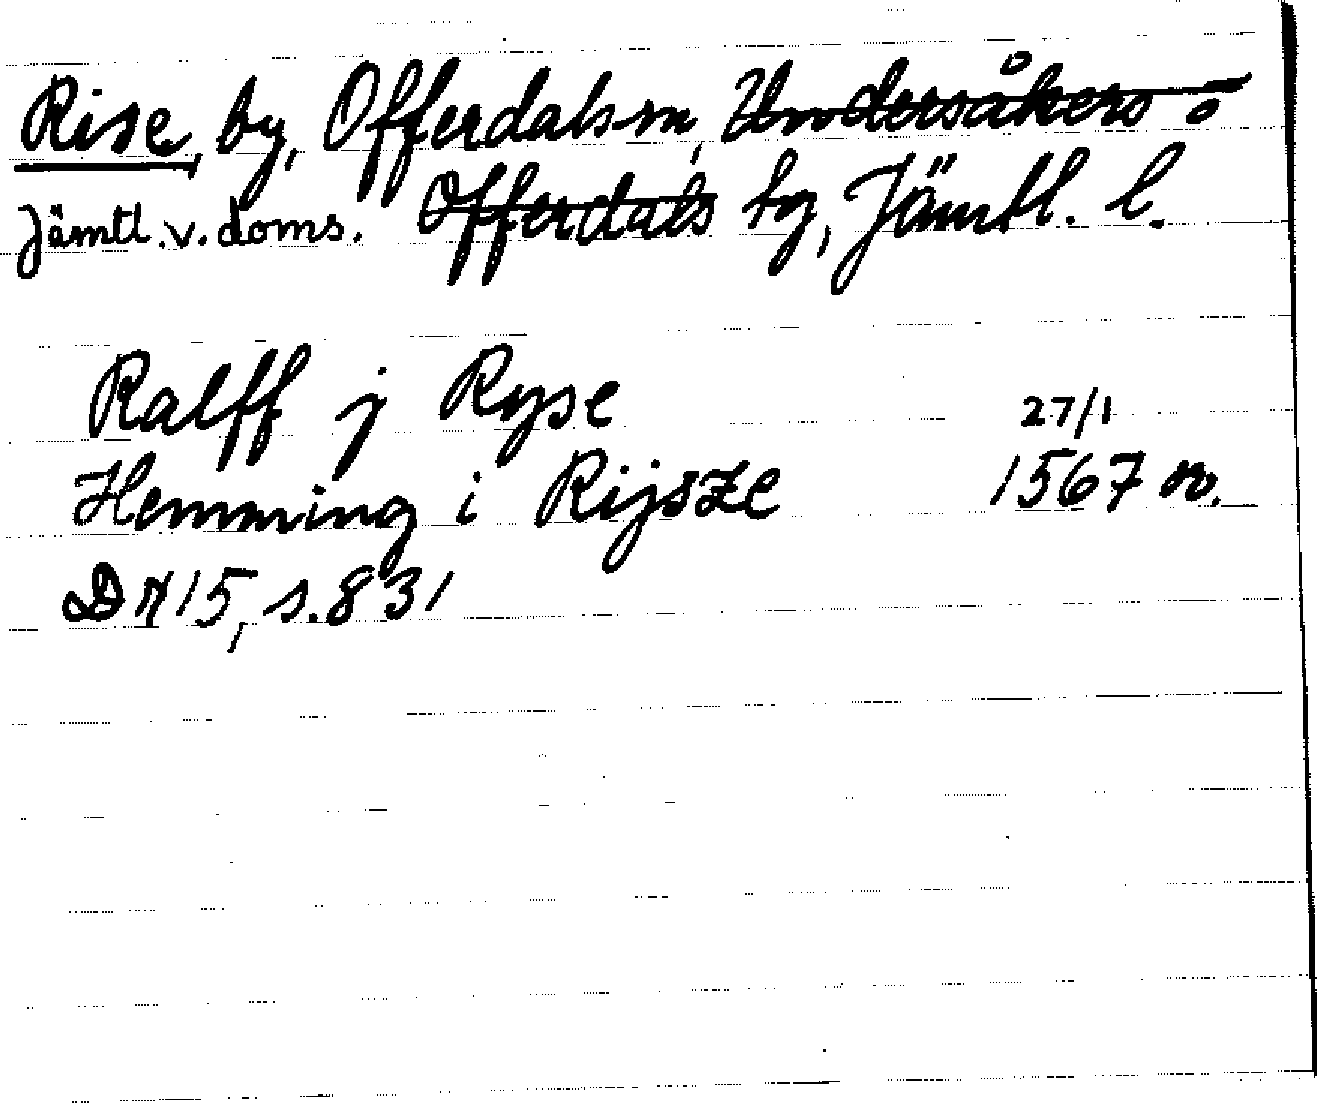 Rise, by, Offerdals sn, Undersåkers o
Jämtl. v. doms. Offerdals tg, Jämtl. l.
Ralff j Ryse 27/1
Hemming i Rijsze 1567 or.
DN 15, s. 831